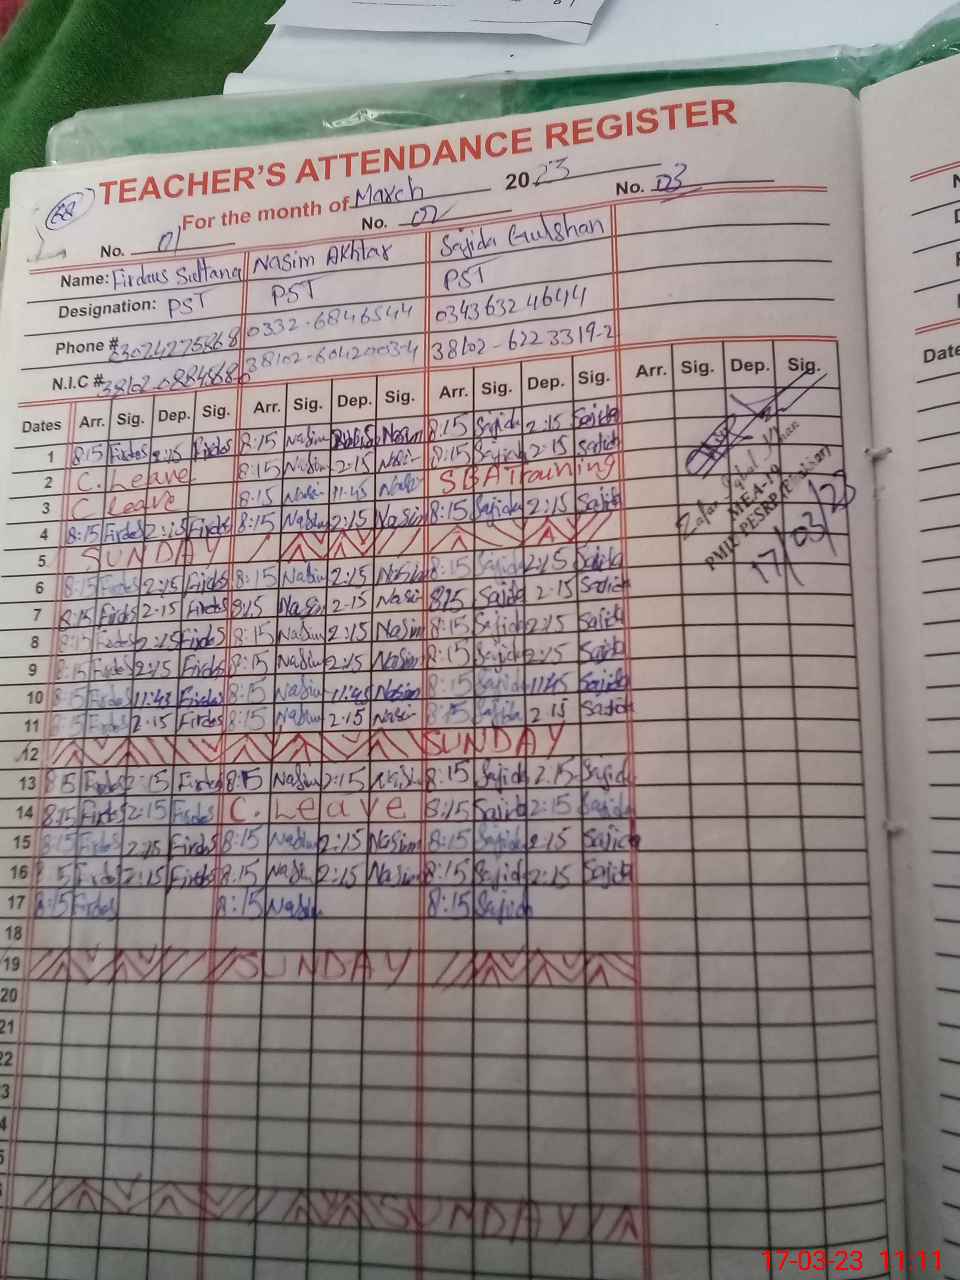 TEACHER'S ATTENDANCE REGISTER
For the month of March 2023
No. 01 No. 02 No. 03
Name: Firdous Sultana Nasim Akhtar Sajida Gulshan
Designation: PST PST PST
Phone # 03024275868 0332-6846544 03436324644
N.I.C # 38102-6042003-4 38102-6223319-2
Dates Arr. Sig. Dep. Sig. Arr. Sig. Dep. Sig. Arr. Sig. Dep. Sig. Arr. Sig. Dep. Sig.
1 8:15 Firdos 2:15 Firdos 8:15 Nasim Nasim 8:15 Sajida 2:15 Sajida
2 C. Leave 8:15 Nasim 2:15 Nasi- 8:15 Sajida 2:15 Sajida
3 C Leave 8:15 Nasi- 11:45 Nasi- SBA Training
4 8:15 Firdos 2:15 Firdos 8:15 Nasim 2:15 Nasim 8:15 Sajida 2:15 Sajida
5 SUNDAY
6 8:15 Firdos 2:15 Firdos 8:15 Nasim 2:15 Nasim 8:15 Sajida 2:15 Sajida
7 8:15 Firdos 2-15 Firdos 8:15 Nasim 2-15 Nasi- 8:15 Sajida 2-15 Sajida
8 8:15 Firdos 2:15 Firdos 8:15 Nasim 2:15 Nasim 8:15 Sajida 2:15 Sajida
9 8:15 Firdos 2:15 Firdos 8:15 Nasim 2:15 Nasim 8:15 Sajida 2:15 Sajida
10 8:15 Firdos 11:45 Firdos 8:15 Nasim 11:45 Nasim 8:15 Sajida 11:45 Sajida
11 8:15 Firdos 2:15 Firdos 8:15 Nasim 2:15 Nasi- 8:15 Sajida 2:15 Sajida
12 SUNDAY
13 8:15 Firdos 2:15 Firdos 8:15 Nasim 2:15 Nasim 8:15 Sajida 2:15 Sajida
14 8:15 Firdos 2:15 Firdos C. Leave 8:15 Sajida 2:15 Sajida
15 8:15 Firdos 2:15 Firdos 8:15 Nasim 2:15 Nasim 8:15 Sajida 2:15 Sajida
16 8:15 Firdos 2:15 Firdos 8:15 Nasim 2:15 Nasim 8:15 Sajida 2:15 Sajida
17 8:15 Firdos 8:15 Nasim 8:15 Sajida
18
19 SUNDAY
20
21
22
SUNDAY
Zafar Iqbal Khan
MEA-19
17/03/23
Date
17-03-23 11:11